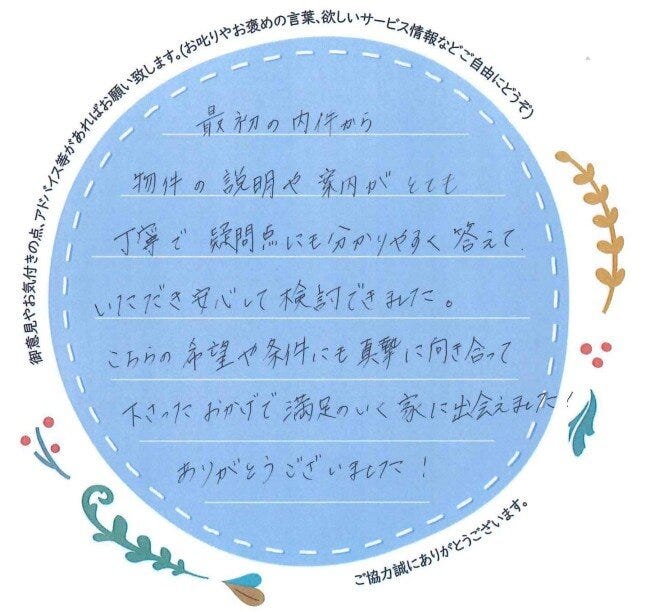 御意見やお気付きの点、アドバイス等があればお願い致します。(お叱りやお褒めの言葉、欲しいサービス情報などご自由にどうぞ)
最初の内件から
物件の説明や案内がとても
丁寧で疑問点にも分かりやすく答えて
いただき安心して検討できました。
こちらの希望や条件にも真摯に向き合って
下さったおかげで満足のいく家に出会えました!
ありがとうございました!
ご協力誠にありがとうございます。